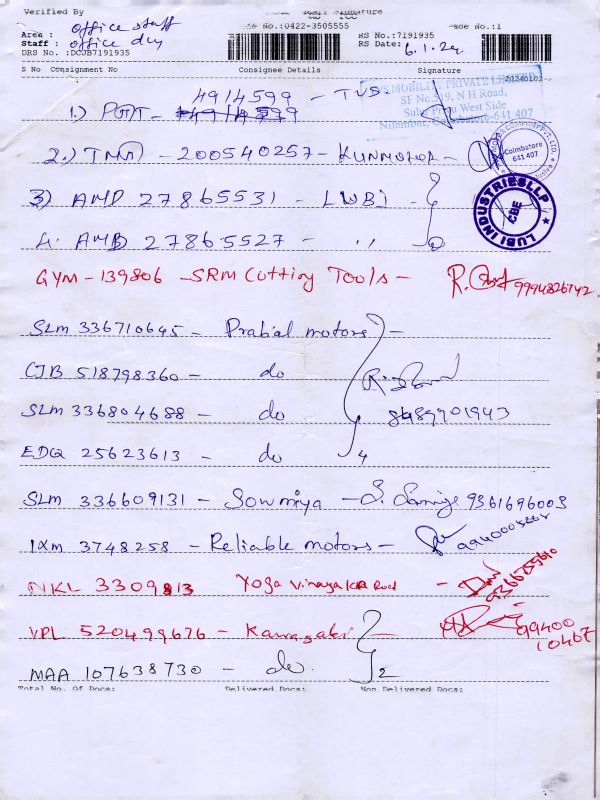 Verified By Signature
Area : office staff No.:0422-3505555 Code No.:1
Staff : office dcy RS No.:7191935
DRS No. :DCJB7191935 RS Date: 6.1.24
S No Consignment No Consignee Details Signature 20240102
MOBILITY PRIVATE LIMITED
SF No. N H Road,
West Side
Coimbatore-641 407
1.) 4914599 - TVS
2.) - 200540257 - Coimbatore 641 407
3) AMD 27865531 - LUBI
4. AMD 27865527 - ,,
LUBI INDUSTRIES LLP CBE
GYM - 139806 - SRM Cutting Tools - 9994826742
SLM 336710645 - Prabal motors -
CJB 518798360 - do
SLM 336804688 - do 8489901943
EDQ 25623613 - do 4
SLM 336609131 - Sowmiya - 9361696003
IXM 3748258 - Reliable motors -
NKL 3309813 Yoga Vinayaka Road -
VPL 520499676 - Kawasaki - 99400 10467
MAA 107638730 - do. 2
Total No. Of Docs: Delivered Docs: Non Delivered Docs: